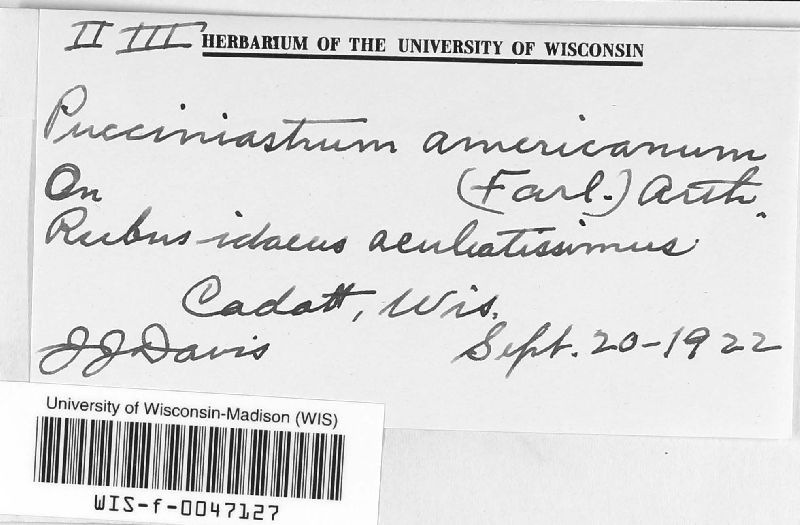 II III HERBARIUM OF THE UNIVERSITY OF WISCONSIN
Pucciniastrum americanum
On (Farl.) Arth.
Rubus idaeus aculeatissimus
Cadott, Wis.
JJDavis Sept. 20-1922
University of Wisconsin-Madison (WIS)
WIS-f-0047127